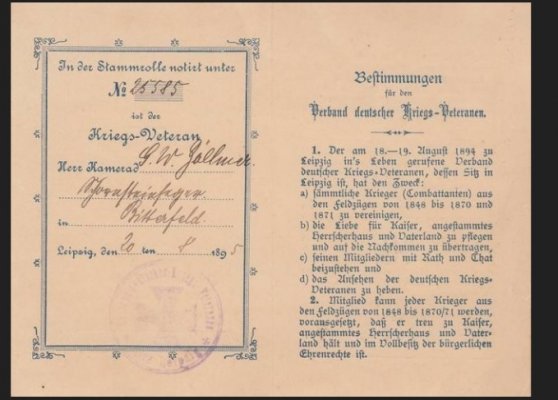 In der Stammrolle notirt unter
No 25585
ist der
Kriegs-Veteran
Herr Kamerad G. W. Zöllner
Schornsteinfeger
in Bitterfeld
Leipzig, den 20 ten 8 1895
Bestimmungen
für den
Verband deutscher Kriegs-Veteranen.
1. Der am 18.—19. August 1894 zu
Leipzig in's Leben gerufene Verband
deutscher Kriegs-Veteranen, dessen Sitz in
Leipzig ist, hat den Zweck:
a) sämmtliche Krieger (Combattanten) aus
den Feldzügen von 1848 bis 1870 und
1871 zu vereinigen,
b) die Liebe für Kaiser, angestammtes
Herrscherhaus und Vaterland zu pflegen
und auf die Nachkommen zu übertragen,
c) seinen Mitgliedern mit Rath und That
beizustehen und
d) das Ansehen der deutschen Kriegs-
Veteranen zu heben.
2. Mitglied kann jeder Krieger aus
den Feldzügen von 1848 bis 1870/71 werden,
vorausgesetzt, daß er treu zu Kaiser,
angestammtes Herrscherhaus und Vater-
land hält und im Vollbesitz der bürgerlichen
Ehrenrechte ist.